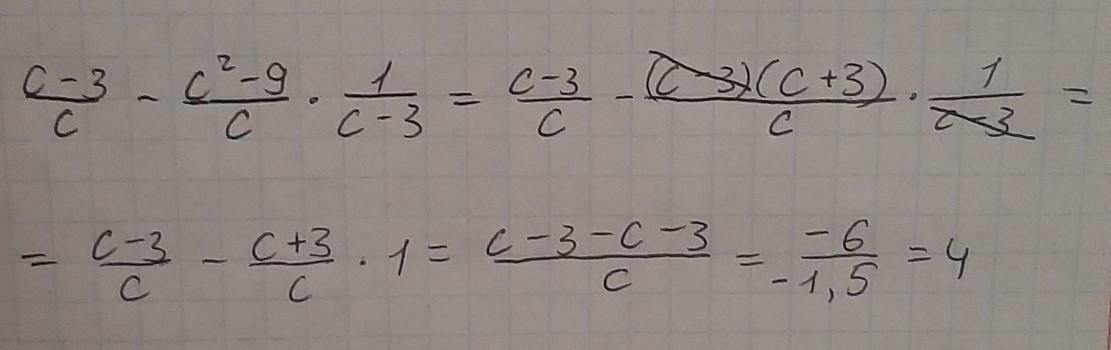 \frac{c-3}{c} - \frac{c^2-9}{c} \cdot \frac{1}{c-3} = \frac{c-3}{c} - \frac{(c-3)(c+3)}{c} \cdot \frac{1}{c-3} =
= \frac{c-3}{c} - \frac{c+3}{c} \cdot 1 = \frac{c-3-c-3}{c} = \frac{-6}{-1,5} = 4